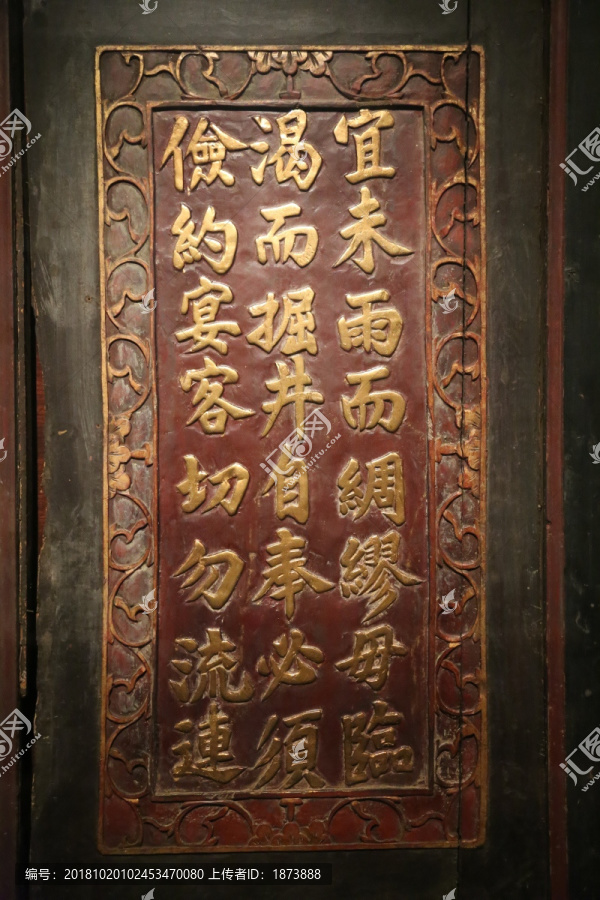 宜未雨而綢繆毋臨
渴而掘井自奉必須
儉約宴客切勿流連
汇图网
www.huitu.com
编号：20181020102453470080 上传者ID：1873888